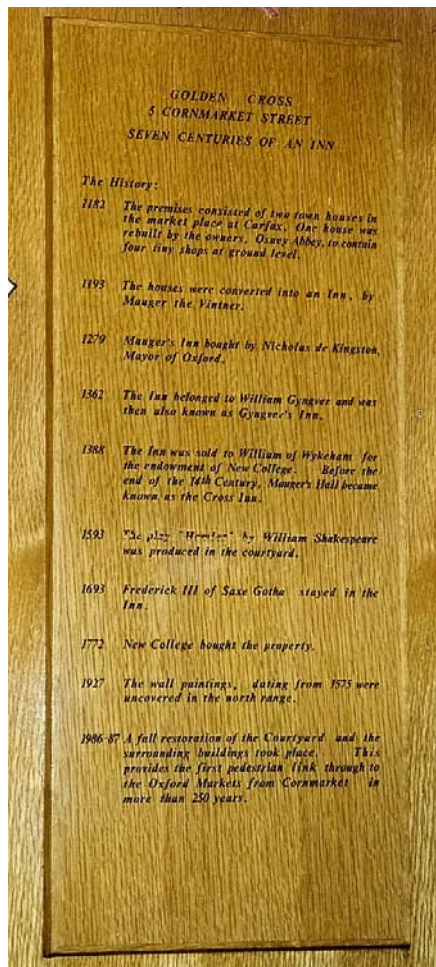 GOLDEN CROSS
5 CORNMARKET STREET
SEVEN CENTURIES OF AN INN
The History:
1182 The premises consisted of two town houses in
the market place at Carfax. One house was
rebuilt by the owners, Osney Abbey, to contain
four tiny shops at ground level.
1193 The houses were converted into an Inn, by
Mauger the Vintner.
1279 Mauger's Inn bought by Nicholas de Kingston,
Mayor of Oxford.
1362 The Inn belonged to William Gyngver and was
then also known as Gyngver's Inn.
1388 The Inn was sold to William of Wykeham for
the endowment of New College. Before the
end of the 14th Century, Mauger's Hall became
known as the Cross Inn.
1593 The play "Hamlet" by William Shakespeare
was produced in the courtyard.
1693 Frederick III of Saxe Gotha stayed in the
Inn.
1772 New College bought the property.
1927 The wall paintings, dating from 1575 were
uncovered in the north range.
1986-87 A full restoration of the Courtyard and the
surrounding buildings took place. This
provides the first pedestrian link through to
the Oxford Markets from Cornmarket in
more than 250 years.